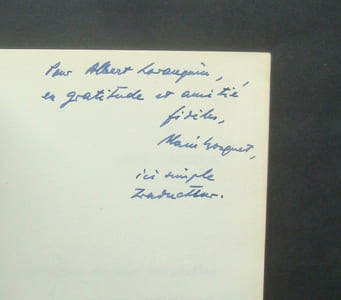 Pour Albert Loranquin,
en gratitude et amitié
fidèles,
Alain Bosquet,
ici simple
traducteur.